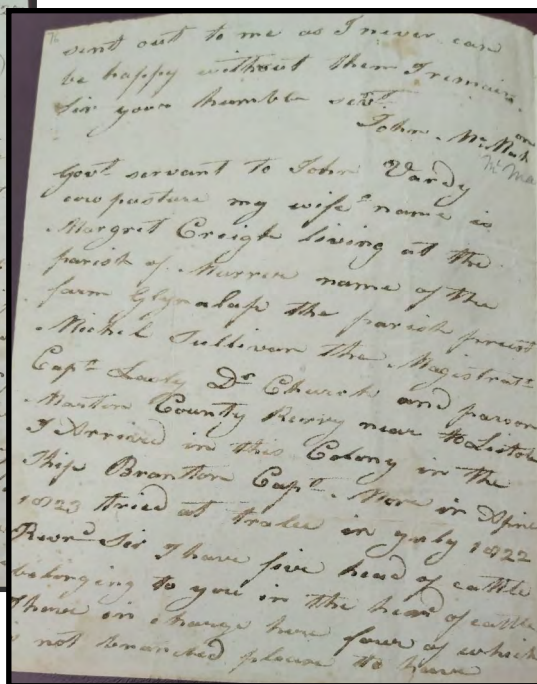 76
sent out to me as I never can
be happy without them I remain
Sir your humble servt.
John Mc
Govt servant to John Vardy
cowpasture my wifes name is
Margret Creigh living at the
parish of Murrer name of the
farm the parish preist
Michel Sullivan the Magistrate
Capt Dr Church and parson
Martin County Kerry near to Listol
I Arrived in this Colony in the
Ship Brampton Capt. More in Aprie
1823 tried at tralee in july 1822
Revrd Sir I have five head of cattle
belonging to you in the head of cattle
I have in charge here four of which
is not branded please to have